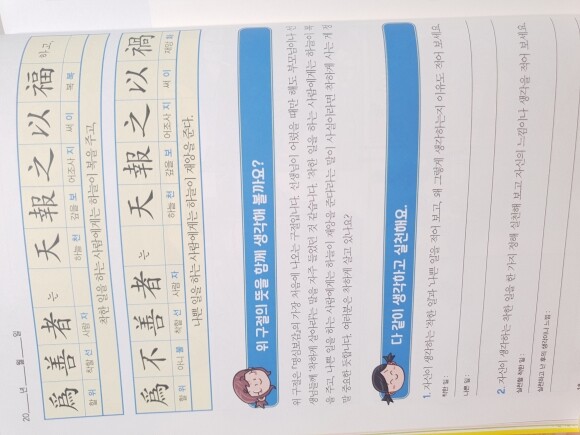 20 년 월 일
爲善者는 天報之以福하고
할 위 착할 선 사람 자 하늘 천 갚을 보 어조사 지 써 이 복 복
착한 일을 하는 사람에게는 하늘이 복을 주고,
爲不善者는 天報之以禍
할 위 아니 불 착할 선 사람 자 하늘 천 갚을 보 어조사 지 써 이 재앙 화
나쁜 일을 하는 사람에게는 하늘이 재앙을 준다.
위 구절의 뜻을 함께 생각해 볼까요?
위 구절은 『명심보감』의 가장 처음에 나오는 구절입니다. 선생님이 어렸을 때만 해도 부모님이나 선
생님들께 '착하게 살아라'는 말을 자주 들었던 것 같습니다. '착한 일을 하는 사람에게는 하늘이 복
을 주고, 나쁜 일을 하는 사람에게는 하늘이 재앙을 준다'라는 말이 사실이라면 착하게 사는 게 정
말 중요한 듯합니다. 여러분은 착하게 살고 있나요?
다 같이 생각하고 실천해요.
1. 자신이 생각하는 '착한 일'과 '나쁜 일'을 적어 보고, 왜 그렇게 생각하는지 이유도 적어 보세요.
착한 일 :
나쁜 일 :
2. 자신이 생각하는 착한 일을 한 가지 정해 실천해 보고 자신의 느낌이나 생각을 적어 보세요.
실천할 착한 일 :
실천하고 난 후의 생각이나 느낌 :